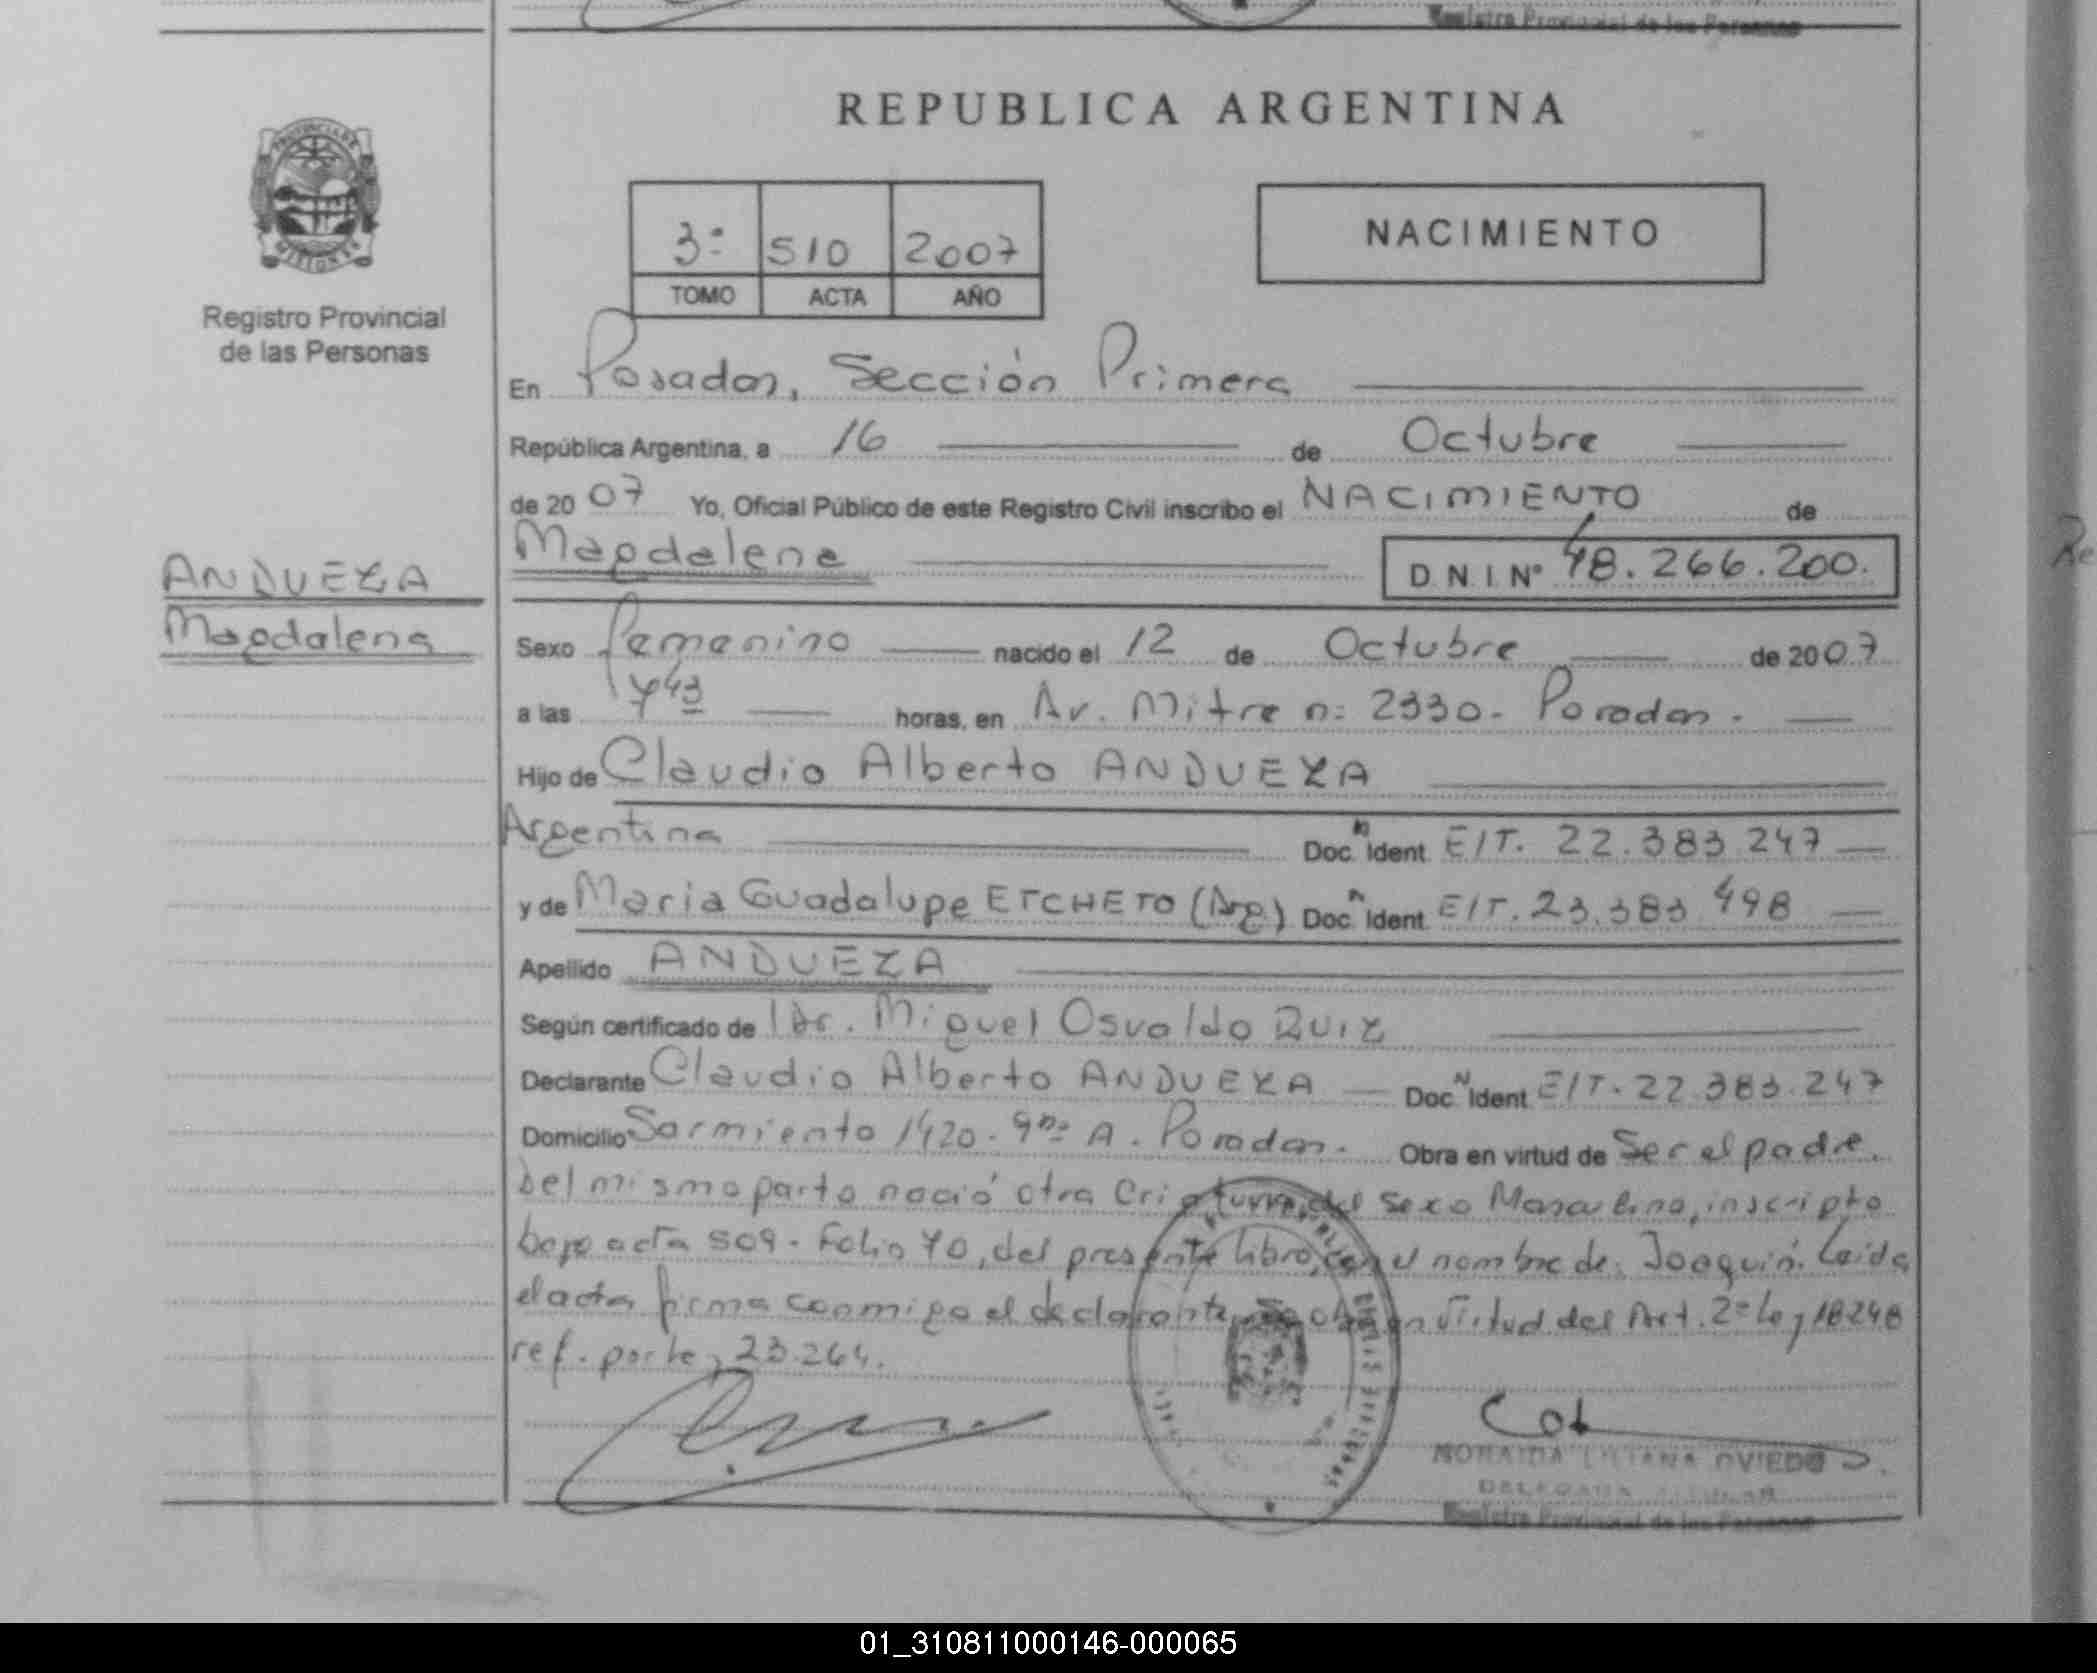 Registro Provincial de las Personas
PROVINCIA DE
MISIONES
Registro Provincial
de las Personas
ANDUEZA
Magdalena
REPUBLICA ARGENTINA
3º 510 2007
TOMO ACTA AÑO
NACIMIENTO
En Posadas, Sección Primera
República Argentina, a 16 de Octubre
de 20 07 Yo, Oficial Público de este Registro Civil inscribo el NACIMIENTO de
Magdalena D.N.I. Nº 48.266.200.
Sexo femenino nacido el 12 de Octubre de 20 07
a las horas, en Av. Mitre n: 2330. Posadas.
Hijo de Claudio Alberto ANDUEZA
Argentina Doc. Ident. E/T. 22.383.247
y de Maria Guadalupe ETCHETO (Arg) Doc. Ident. E/T. 23.383 498
Apellido ANDUEZA
Según certificado de Dr. Miguel Osvaldo RUIZ
Declarante Claudio Alberto ANDUEZA Doc. Ident. E/T. 22.383.247
Domicilio Sarmiento 1420. 9no A. Posadas. Obra en virtud de Ser el padre.
Del mismo parto nació otra Criatura del sexo Masculino, inscripto
bajo acta 509. Folio 70, del presente libro, con el nombre de: Joaquín. Leida
el acta firma conmigo el declarante, en virtud del Art. 2º Ley 18248
ref. por ley 23.264.
NORAIDA LILIANA OVIEDO
DELEGADA TITULAR
Registro Provincial de las Personas
01_310811000146-000065